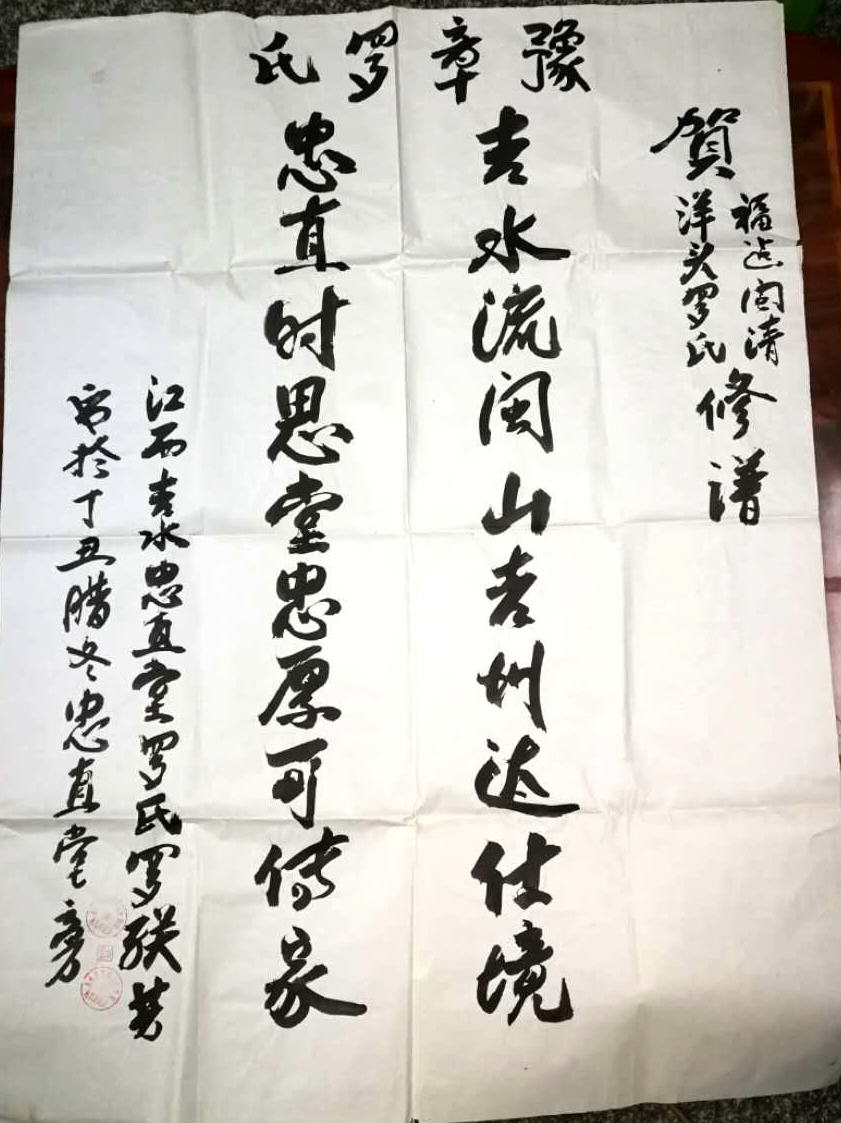 豫章罗氏
賀
福建闽清
洋头罗氏
修谱
吉水流闽山吉州达仕境
忠直时思堂忠厚可传家
江西吉水忠直堂罗氏罗联芳
写於丁丑腊冬忠直堂旁